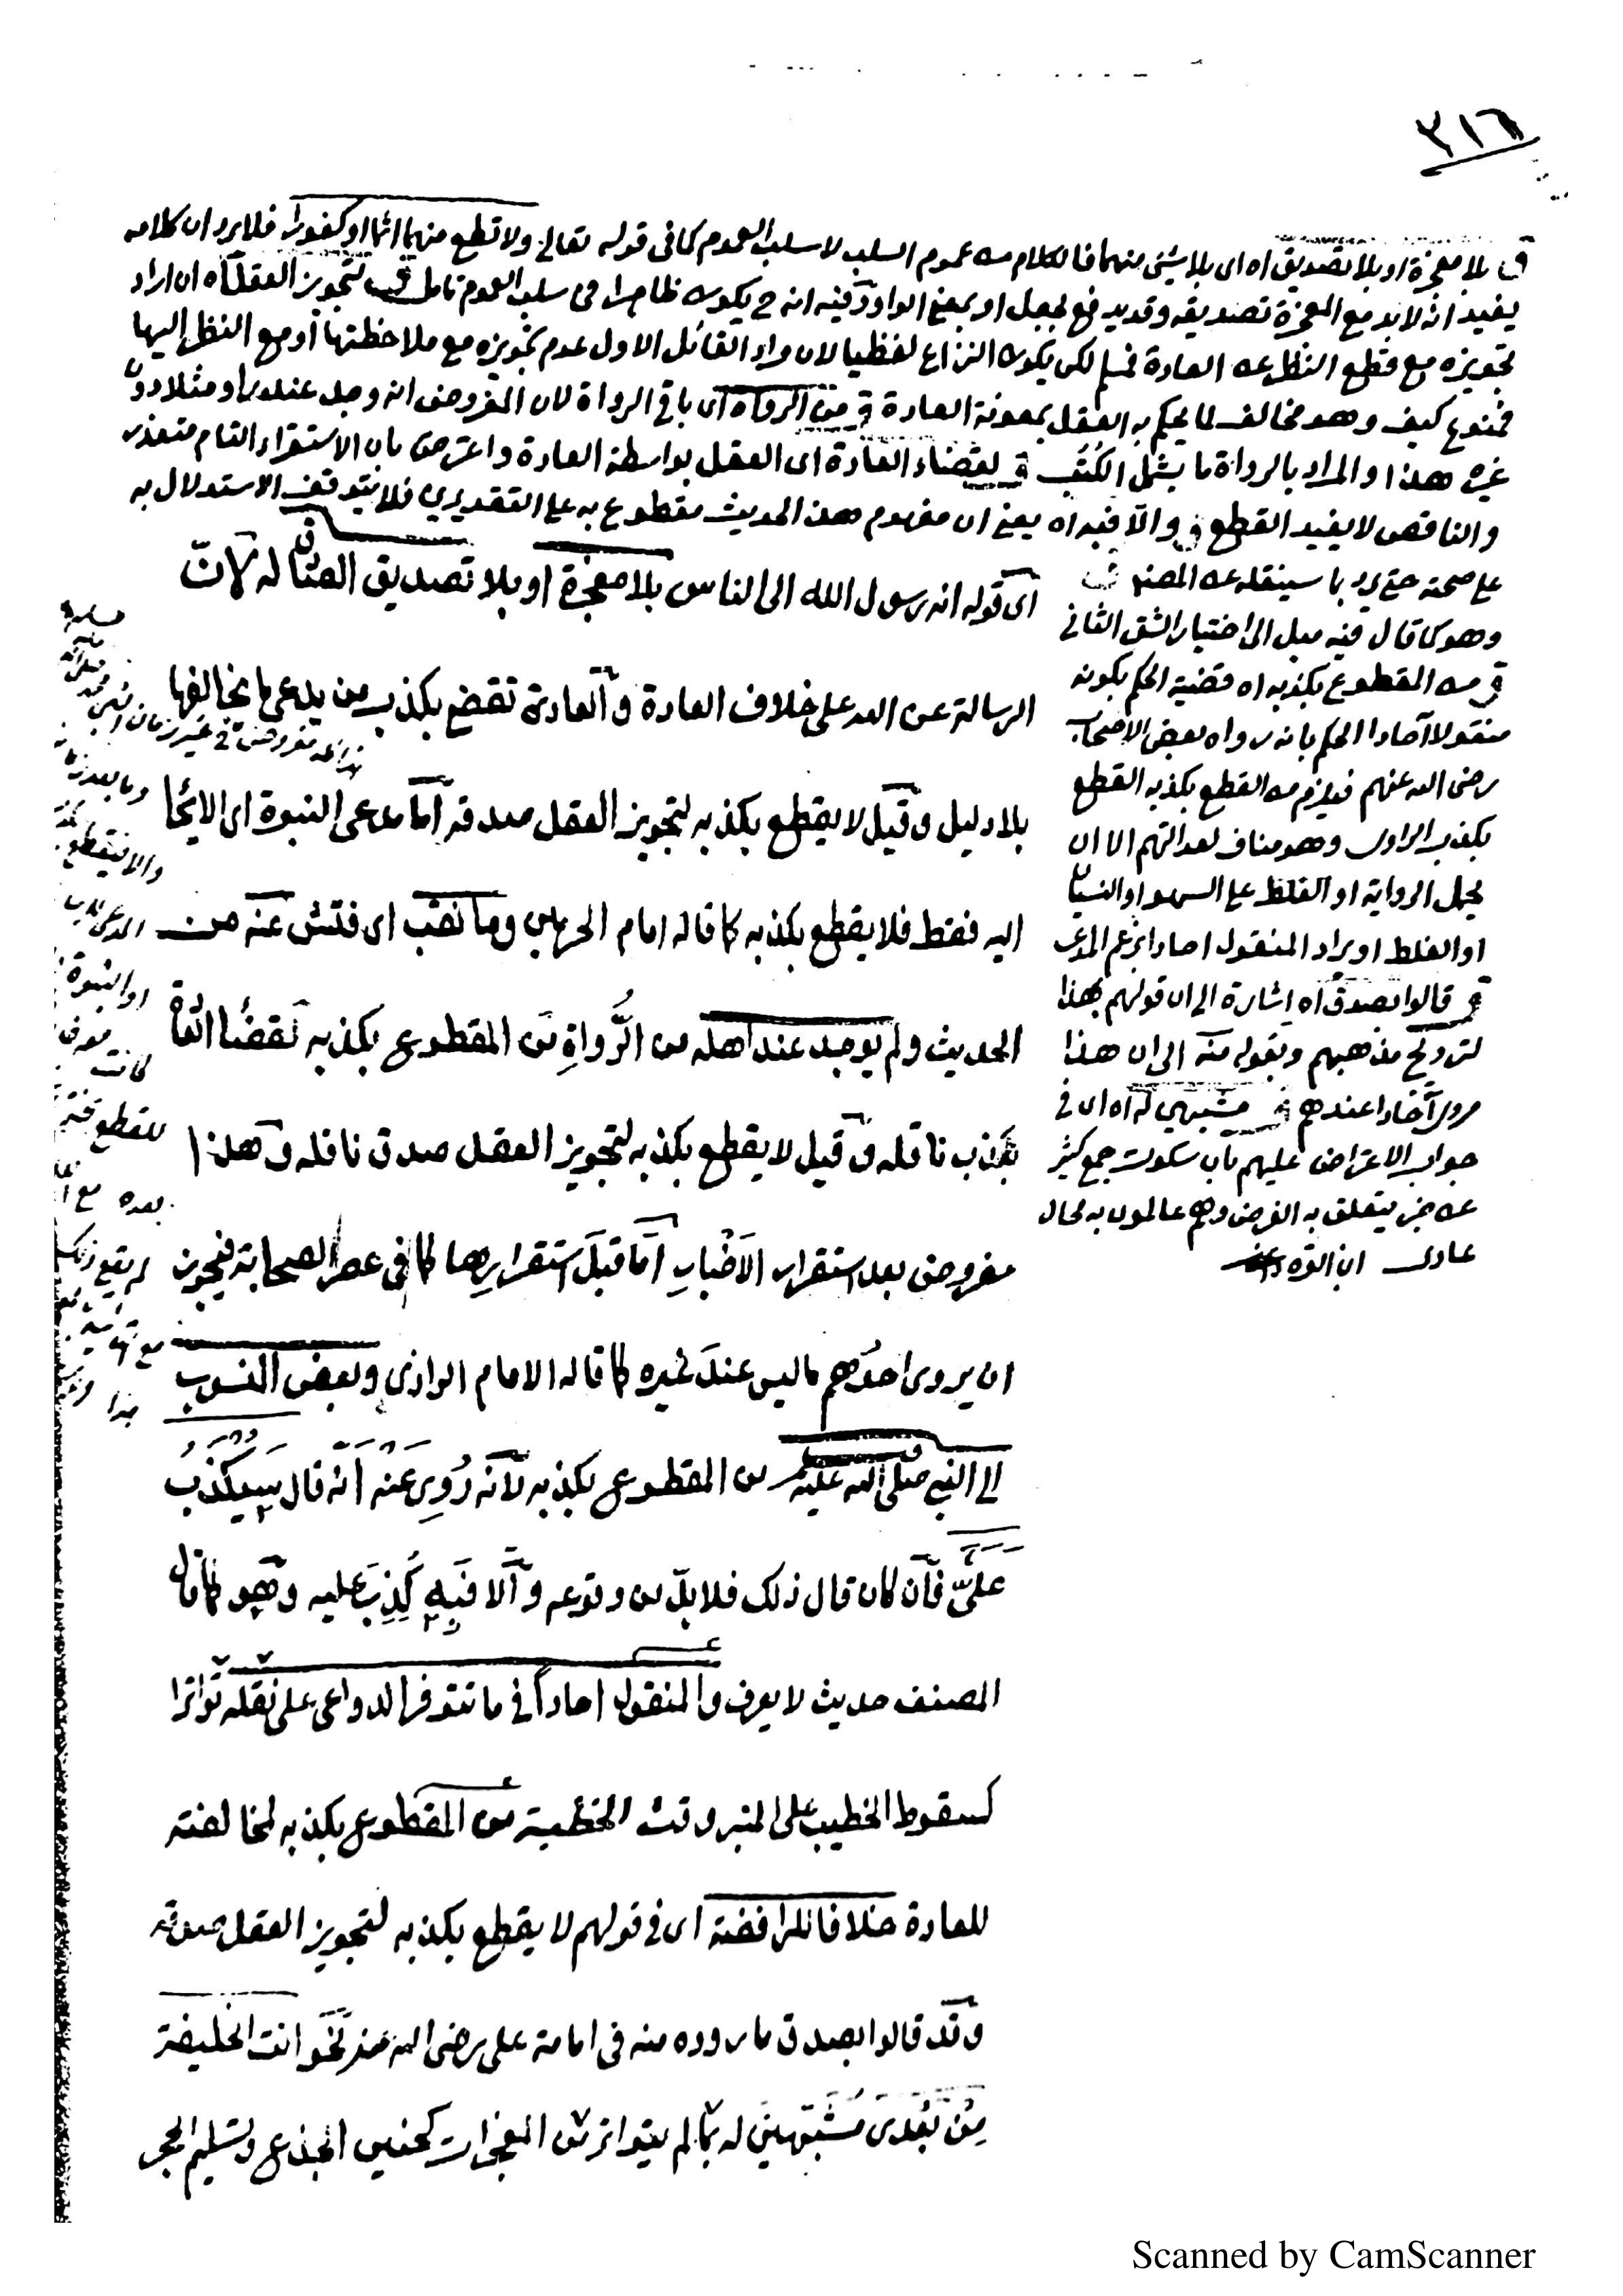 ٣١٦
ق بلا معجزة او بلا تصديق اه اى بلا شئ منهما فالكلام من عموم السلب لا سلب العموم كما فى قوله تعالى ولا تطع منهم اثما او كفورا فلا يرد ان كلامه
يفيد انه لا بد مع المعجزة تصديقه وقد يدفع بجعل او بمعنى الواو وفيه انه ح يكون ظاهرا فى سلب العموم تامل ق لتجويز العقل اه ان اراد
تجويزه مع قطع النظر عن العادة فمسلم لكن يكون النزاع لفظيا لان مراد القائل الاول عدم تجويزه مع ملاحظتها او مع النظر اليها
فممنوع كيف وهو مخالف لما يحكم به العقل بمعونة العادة ق من الرواة اى باقى الرواة لان المفروض انه وجد عند راو مثلا دون
غيره هذا والمراد بالرواة ما يشمل الكتب ق لقضاء العادة اى العقل بواسطة العادة واعترض بان الاستقراء التام متعذر
والناقص لا يفيد القطع ق والا فبه اه يعنى ان مفهوم هذا الحديث مقطوع به على التقديرين فلا يتوقف الاستدلال به
على صحته حتى يرد بما سينقله عن المصنف ق
وهو كما قال فيه ميل الى اختيار الشق الثانى
ق من المقطوع بكذبه اه قضية الحكم بكونه
منقولا آحادا الحكم بانه رواه بعض الاصحاب
رضى الله عنهم فيلزم من القطع بكذبه القطع
بكذب الراوى وهو مناف لعدالتهم الا ان
يحمل الرواية او الغلط على السهو او النسيان
او الغلط او يراد المنقول احادا بزعم المدعى
ق قالوا بصدق اه اشارة الى ان قولهم بهذا
لترويج مذهبهم وبقوله منه الى ان هذا
مروى آحادا عندهم ق مشبهين له اه اى فى
جواب الاعتراض عليهم بان سكوت جمع كثير
عن خبر يتعلق به الغرض وهم عالمون به محال
عادى ابن القره داغى
اى قوله انه رسول الله الى الناس بلا معجزة او بلا تصديق الصادق له لان
الرسالة عن الله على خلاف العادة والعادة تقضى بكذب من يدعى ما يخالفها
بلا دليل وقيل لا يقطع بكذبه لتجويز العقل صدقه اما مدعى النبوة اى الايحاء
اليه فقط فلا يقطع بكذبه كما قاله امام الحرمين وما نقب اى فتش عنه من
الحديث ولم يوجد عند اهله من الرواة من المقطوع بكذبه لقضاء العادة
بكذب ناقله وقيل لا يقطع بكذبه لتجويز العقل صدق ناقله وهذا
مفروض بعد استقرار الاخبار اما قبل استقرارها كما فى عصر الصحابة فيجوز
ان يروى احدهم ما ليس عند غيره كما قاله الامام الرازى وبعض المنسوب
الى النبي صلى الله عليه من المقطوع بكذبه لانه روى عنه انه قال سيكذب
علي فان كان قال ذلك فلا بد من وقوعه والا فبه كذب عليه وهو كما قال
المصنف حديث لا يعرف والمنقول احادا فى ما تتوفر الدواعى على نقله تواترا
كسقوط الخطيب على المنبر وقت الخطبة من المقطوع بكذبه لمخالفته
للعادة خلافا للرافضة اى فى قولهم لا يقطع بكذبه لتجويز العقل صدقه
وقد قالوا بصدق ما رووه منه فى امامة على رضى الله عنه نحو انت الخليفة
من بعدى مشبهين له بما لم يتواتر من المعجزات كحنين الجذع وتسليم الحجر
Scanned by CamScanner